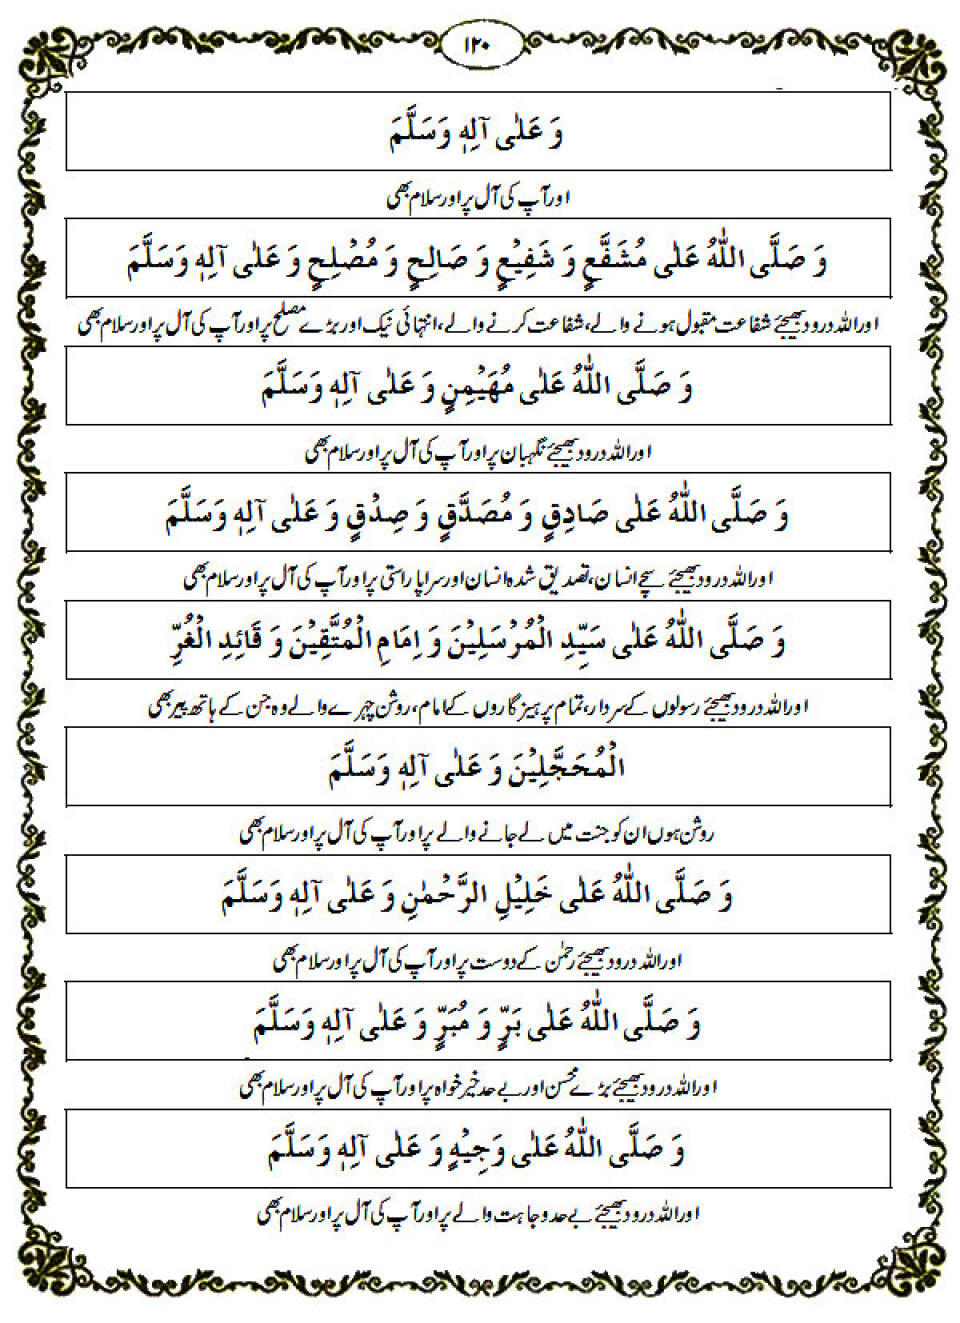 ۱۲۰
وَ عَلٰی آلِہٖ وَسَلَّمَ
اور آپ کی آل پر اور سلام بھی
وَ صَلَّی اللّٰہُ عَلٰی مُشَفَّعٍ وَ شَفِیْعٍ وَ صَالِحٍ وَ مُصْلِحٍ وَ عَلٰی آلِہٖ وَسَلَّمَ
اور اللہ درود بھیجئے شفاعت مقبول ہونے والے، شفاعت کرنے والے، انتہائی نیک اور بڑے مصلح پر اور آپ کی آل پر اور سلام بھی
وَ صَلَّی اللّٰہُ عَلٰی مُهَیْمِنٍ وَ عَلٰی آلِہٖ وَسَلَّمَ
اور اللہ درود بھیجئے نگہبان پر اور آپ کی آل پر اور سلام بھی
وَ صَلَّی اللّٰہُ عَلٰی صَادِقٍ وَ مُصَدَّقٍ وَ صِدْقٍ وَ عَلٰی آلِہٖ وَسَلَّمَ
اور اللہ درود بھیجئے سچے انسان، تصدیق شدہ انسان اور سراپا راستی پر اور آپ کی آل پر اور سلام بھی
وَ صَلَّی اللّٰہُ عَلٰی سَیِّدِ الْمُرْسَلِیْنَ وَ اِمَامِ الْمُتَّقِیْنَ وَ قَائِدِ الْغُرِّ
اور اللہ درود بھیجئے رسولوں کے سردار، تمام پرہیزگاروں کے امام، روشن چہرے والے وہ جن کے ہاتھ پیر بھی
الْمُحَجَّلِیْنَ وَ عَلٰی آلِہٖ وَسَلَّمَ
روشن ہوں ان کو جنت میں لے جانے والے پر اور آپ کی آل پر اور سلام بھی
وَ صَلَّی اللّٰہُ عَلٰی خَلِیْلِ الرَّحْمٰنِ وَ عَلٰی آلِہٖ وَسَلَّمَ
اور اللہ درود بھیجئے رحمٰن کے دوست پر اور آپ کی آل پر اور سلام بھی
وَ صَلَّی اللّٰہُ عَلٰی بَرٍّ وَ مُبَرٍّ وَ عَلٰی آلِہٖ وَسَلَّمَ
اور اللہ درود بھیجئے بڑے محسن اور بے حد خیر خواہ پر اور آپ کی آل پر اور سلام بھی
وَ صَلَّی اللّٰہُ عَلٰی وَجِیْہٍ وَ عَلٰی آلِہٖ وَسَلَّمَ
اور اللہ درود بھیجئے بے حد وجاہت والے پر اور آپ کی آل پر اور سلام بھی